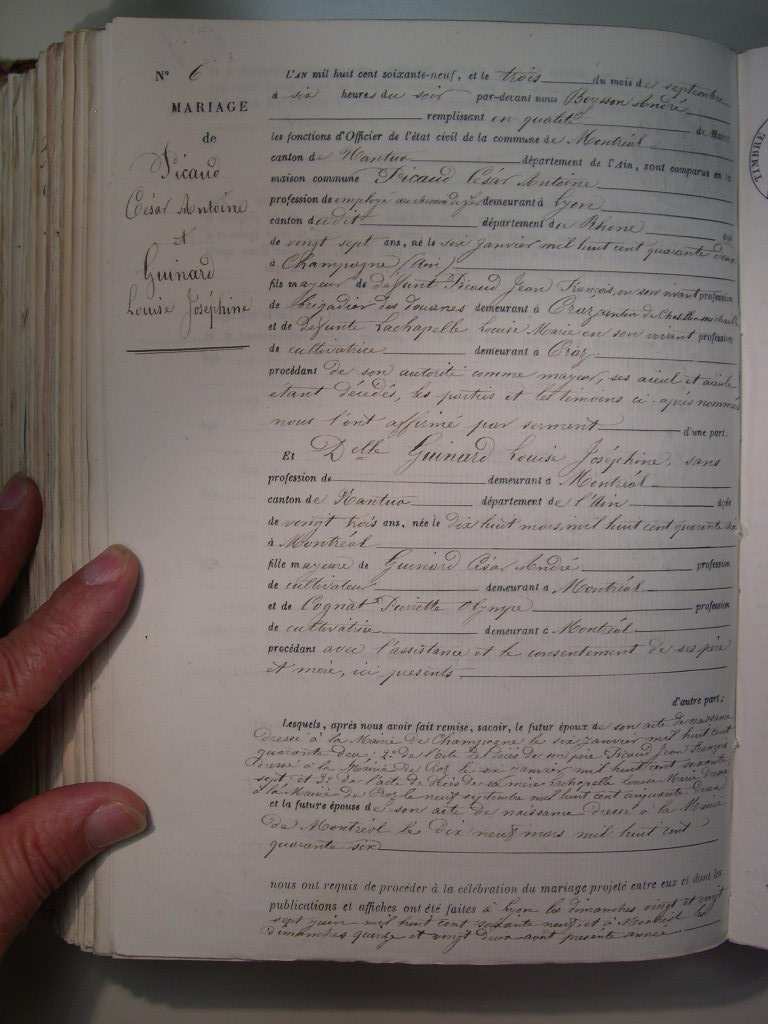 N° 6
MARIAGE
de
Picaud
César Antoine
et
Guinard
Louise Joséphine
L'AN mil huit cent soixante-neuf, et le trois du mois de septembre
à six heures du soir par-devant nous Boysson André
remplissant en qualité de Maire
les fonctions d'Officier de l'état civil de la commune de Montréal
canton de Nantua département de l'Ain, sont comparus en la
maison commune Picaud César Antoine
profession de employé au chemin de fer demeurant à Lyon
canton du dit département du Rhône âgé
de vingt sept ans, né le six janvier mil huit cent quarante deux
à Champagne (Ain)
fils majeur de défunt Picaud Jean François, en son vivant profession
de brigadier des douanes demeurant à Craz
et de défunte Lachapelle Louise Marie en son vivant profession
de cultivatrice demeurant à Craz
procédant de son autorité comme majeur, ses aïeul et aïeule
étant décédés, les parties et les témoins ci-après nommés
nous l'ont affirmé par serment d'une part.
Et Delle Guinard Louise Joséphine, sans
profession de demeurant à Montréal
canton de Nantua département de l'Ain âgée
de vingt trois ans, née le dix huit mars, mil huit cent quarante six
à Montréal
fille majeure de Guinard César André profession
de cultivateur demeurant à Montréal
et de Cognat Pierrette Olympe profession
de cultivatrice demeurant à Montréal
procédant avec l'assistance et le consentement de ses père
et mère, ici présents
d'autre part;
Lesquels, après nous avoir fait remise, savoir, le futur époux de son acte de naissance
dressé à la Mairie de Champagne le six janvier mil huit cent
quarante deux; 2° de l'acte de décès de son père Picaud Jean François
dressé à la Mairie de Craz le janvier mil huit cent soixante
sept et 3° de l'acte de décès de sa mère Lachapelle Louise Marie, dressé
à la Mairie de Craz le neuf septembre mil huit cent cinquante deux
et la future épouse de son acte de naissance dressé à la Mairie
de Montréal le dix neuf mars mil huit cent
quarante six
nous ont requis de procéder à la célébration du mariage projeté entre eux et dont les
publications et affiches ont été faites à Lyon les dimanches vingt et vingt
sept juin mil huit cent soixante neuf et à Montréal les
dimanches quinze et vingt deux août présente année.
TIMBRE